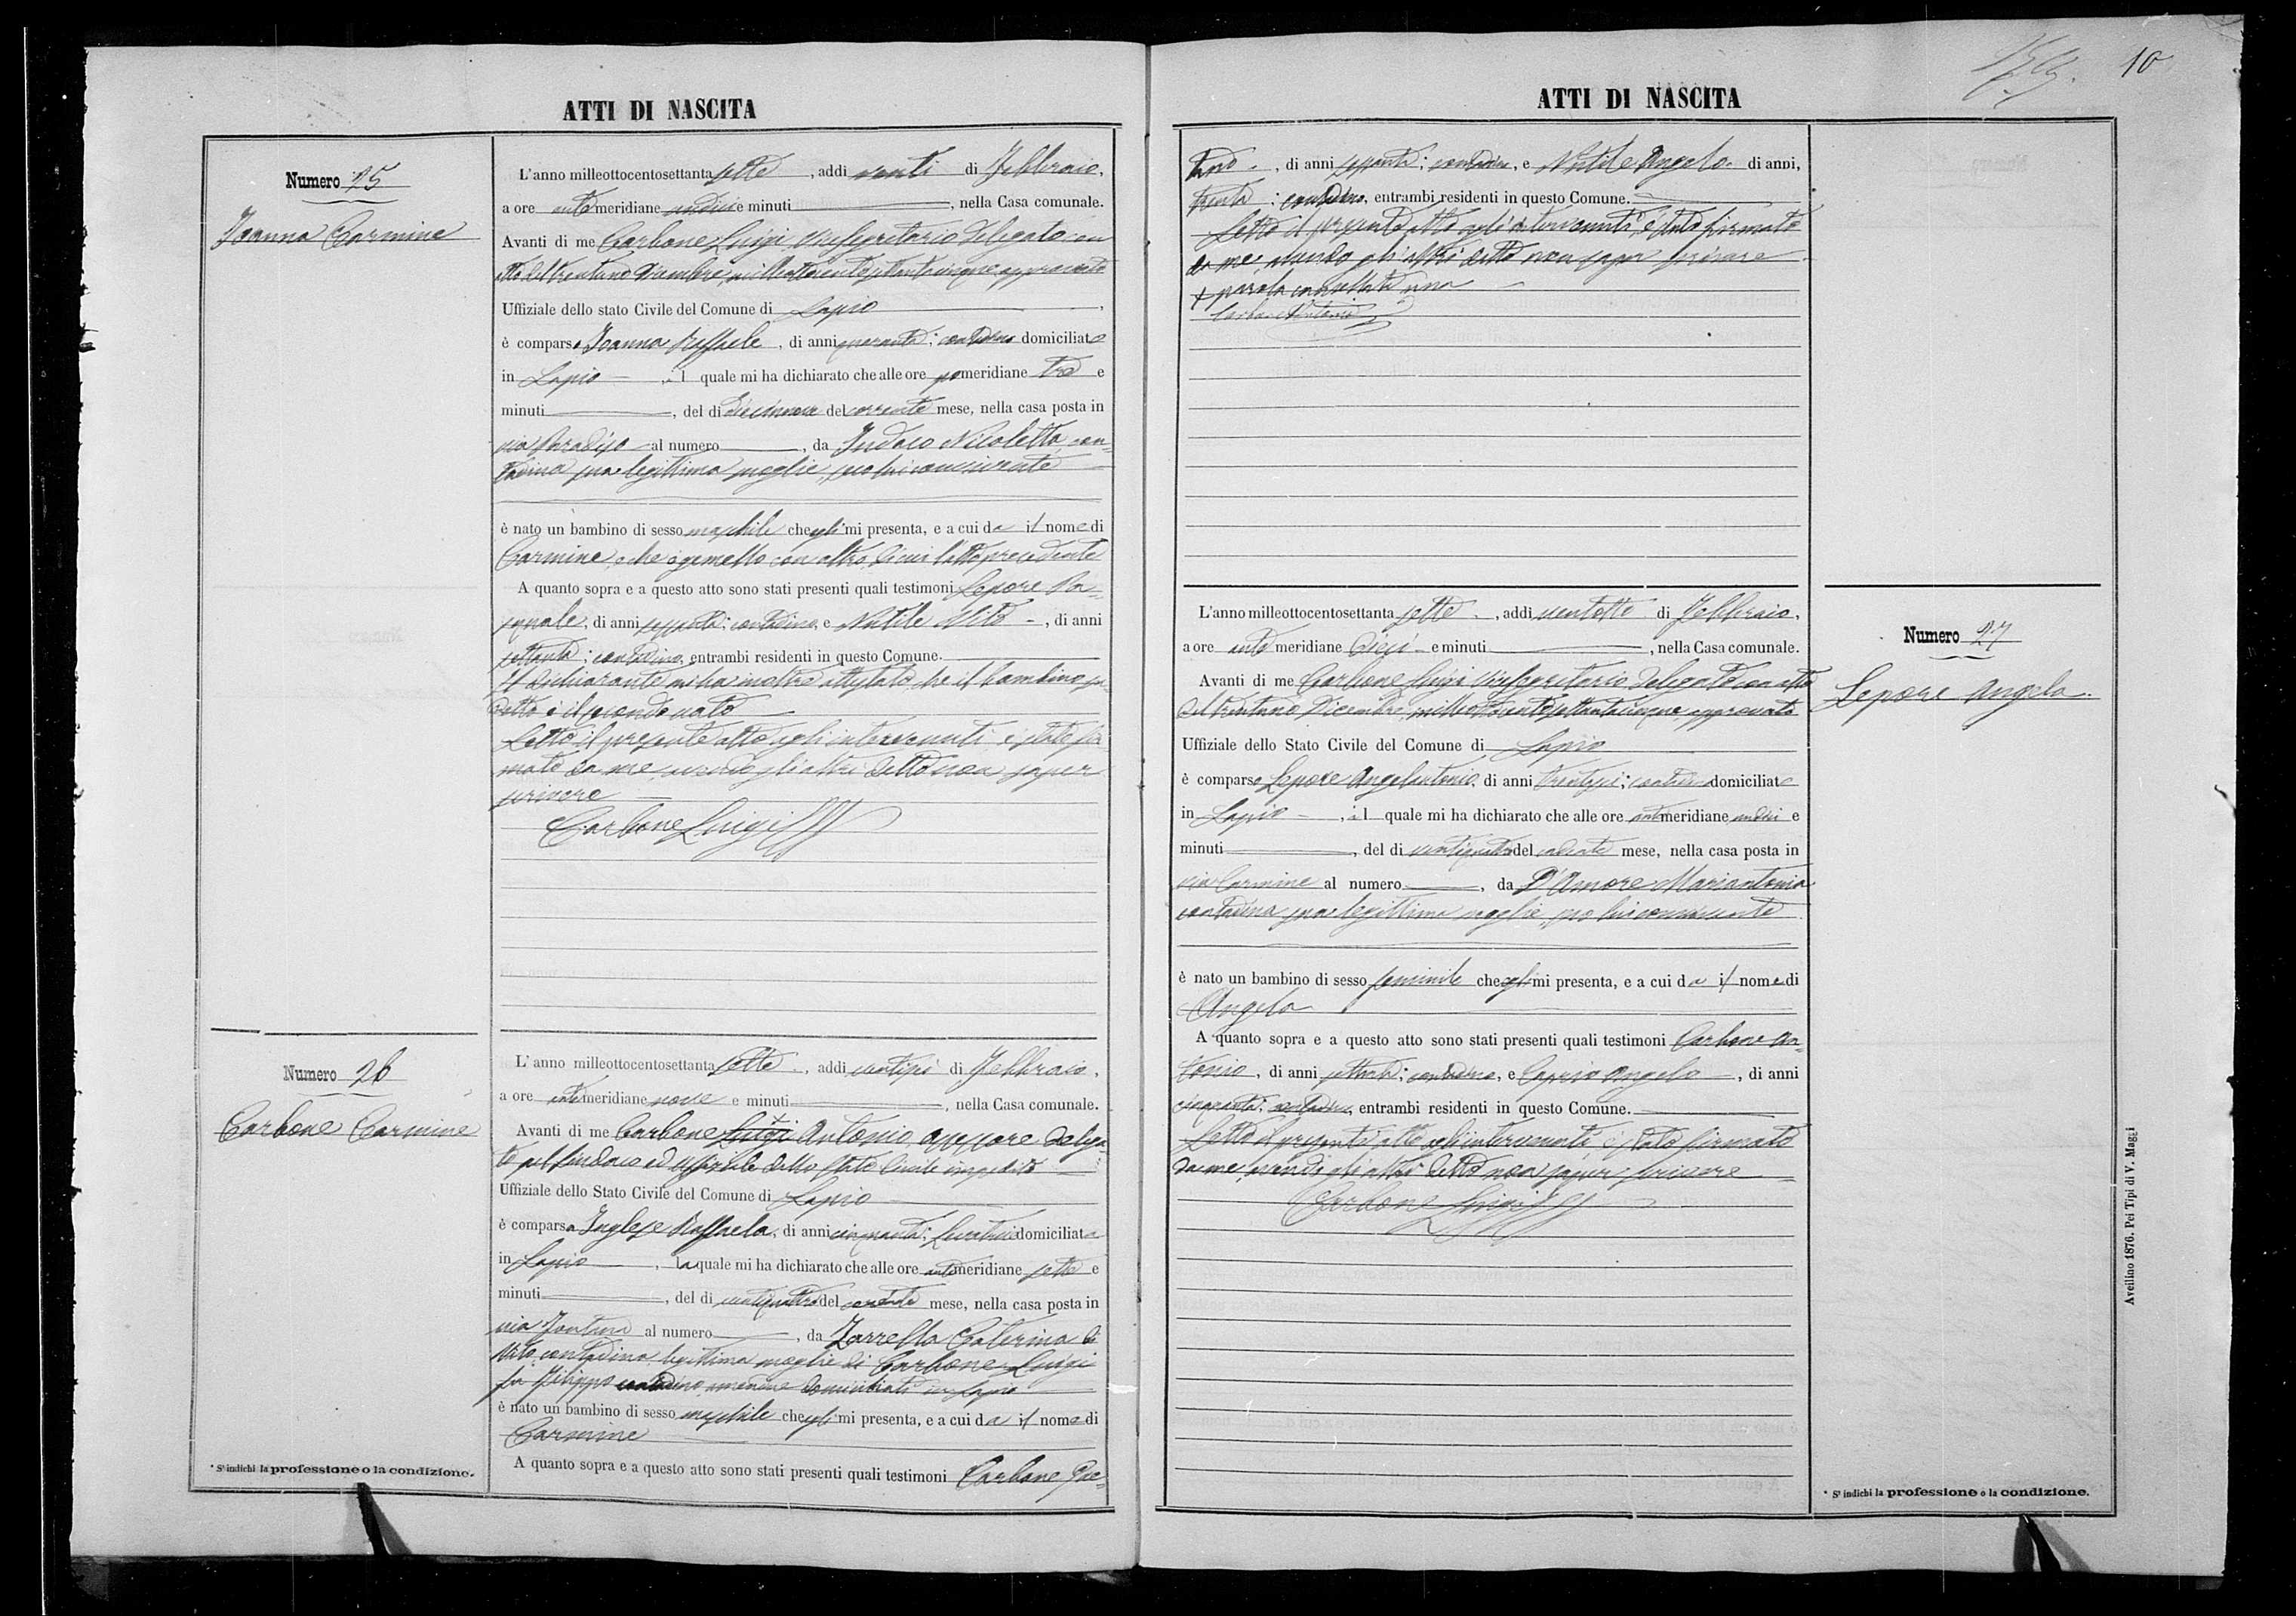 ATTI DI NASCITA
Numero 25
Joanna Carmine
L'anno milleottocentosettanta sette, addì venti di Febbraio,
a ore anti meridiane undici e minuti, nella Casa comunale.
Avanti di me Carbone Luigi Vicesegretario delegato con
atto del trentuno Dicembre milleottocentosettantacinque approvato
Uffiziale dello stato Civile del Comune di Lapio
è comparso Joanna Raffaele, di anni quaranta; contadino domiciliato
in Lapio, il quale mi ha dichiarato che alle ore pomeridiane tre e
minuti, del dì diecinove del corrente mese, nella casa posta in
via Paradiso al numero, da Nicoletta, con-
tadina sua legittima moglie, seco lui convivente
è nato un bambino di sesso maschile che egli mi presenta, e a cui da il nome di
Carmine, che è gemello con altro, di cui l'atto precedente
A quanto sopra e a questo atto sono stati presenti quali testimoni Lepore Pa-
squale, di anni sessanta; contadino, e Nutile Vito, di anni
settanta; contadino, entrambi residenti in questo Comune.
Il dichiarante mi ha inoltre attestato che il bambino su-
detto è il secondo nato
Letto il presente atto agli intervenuti è stato fir-
mato da me, avendo gli altri detto non saper
scrivere
Carbone Luigi
Numero 26
Carbone Carmine
L'anno milleottocentosettanta sette, addì ventisei di Febbraio,
a ore anti meridiane nove e minuti, nella Casa comunale.
Avanti di me Carbone Luigi Antonio assessore delega-
to pel sindaco ed uffiziale dello stato Civile impedito
Uffiziale dello Stato Civile del Comune di Lapio
è comparsa Inglese Raffaela, di anni cinquanta; levatrice domiciliata
in Lapio, la quale mi ha dichiarato che alle ore antimeridiane sette e
minuti, del dì ventiquattro del corrente mese, nella casa posta in
via Fontana al numero, da Zarrella Caterina di
Vito, contadina, legittima moglie di Carbone Luigi
fu Filippo contadino, domiciliati in Lapio
è nato un bambino di sesso maschile che egli mi presenta, e a cui da il nome di
Carmine
A quanto sopra e a questo atto sono stati presenti quali testimoni Carbone Gae-
* Si indichi la professione o la condizione.
10
ATTI DI NASCITA
tano, di anni sessanta; contadino, e Nutile Angelo di anni,
trenta; contadino, entrambi residenti in questo Comune.
Letto il presente atto agli intervenuti, è stato firmato
da me, avendo gli altri detto non saper scrivere
parola cancellata una
Carbone Antonio
Numero 27
Lepore Angela
L'anno milleottocentosettanta sette, addì ventotto di Febbraio,
a ore anti meridiane dieci e minuti, nella Casa comunale.
Avanti di me Carbone Luigi Vicesegretario delegato con atto
del trentuno Dicembre milleottocentosettantacinque approvato
Uffiziale dello Stato Civile del Comune di Lapio
è comparso Lepore Angelantonio, di anni trentasei; contadino domiciliato
in Lapio, il quale mi ha dichiarato che alle ore antimeridiane undici e
minuti, del dì ventiquattro del cadente mese, nella casa posta in
via Carmine al numero, da D'Amore Mariantonia
contadina sua legittima moglie, seco lui convivente
è nato un bambino di sesso femminile che egli mi presenta, e a cui da il nome di
Angela
A quanto sopra e a questo atto sono stati presenti quali testimoni Carbone An-
tonio, di anni settanta; contadino, e Caprio Angelo, di anni
cinquanta; contadino, entrambi residenti in questo Comune.
Letto il presente atto agli intervenuti, è stato firmato
da me, avendo gli altri detto non saper scrivere
Carbone Luigi
* Si indichi la professione o la condizione.
Avellino 1876. Pei Tipi di V. Maggi